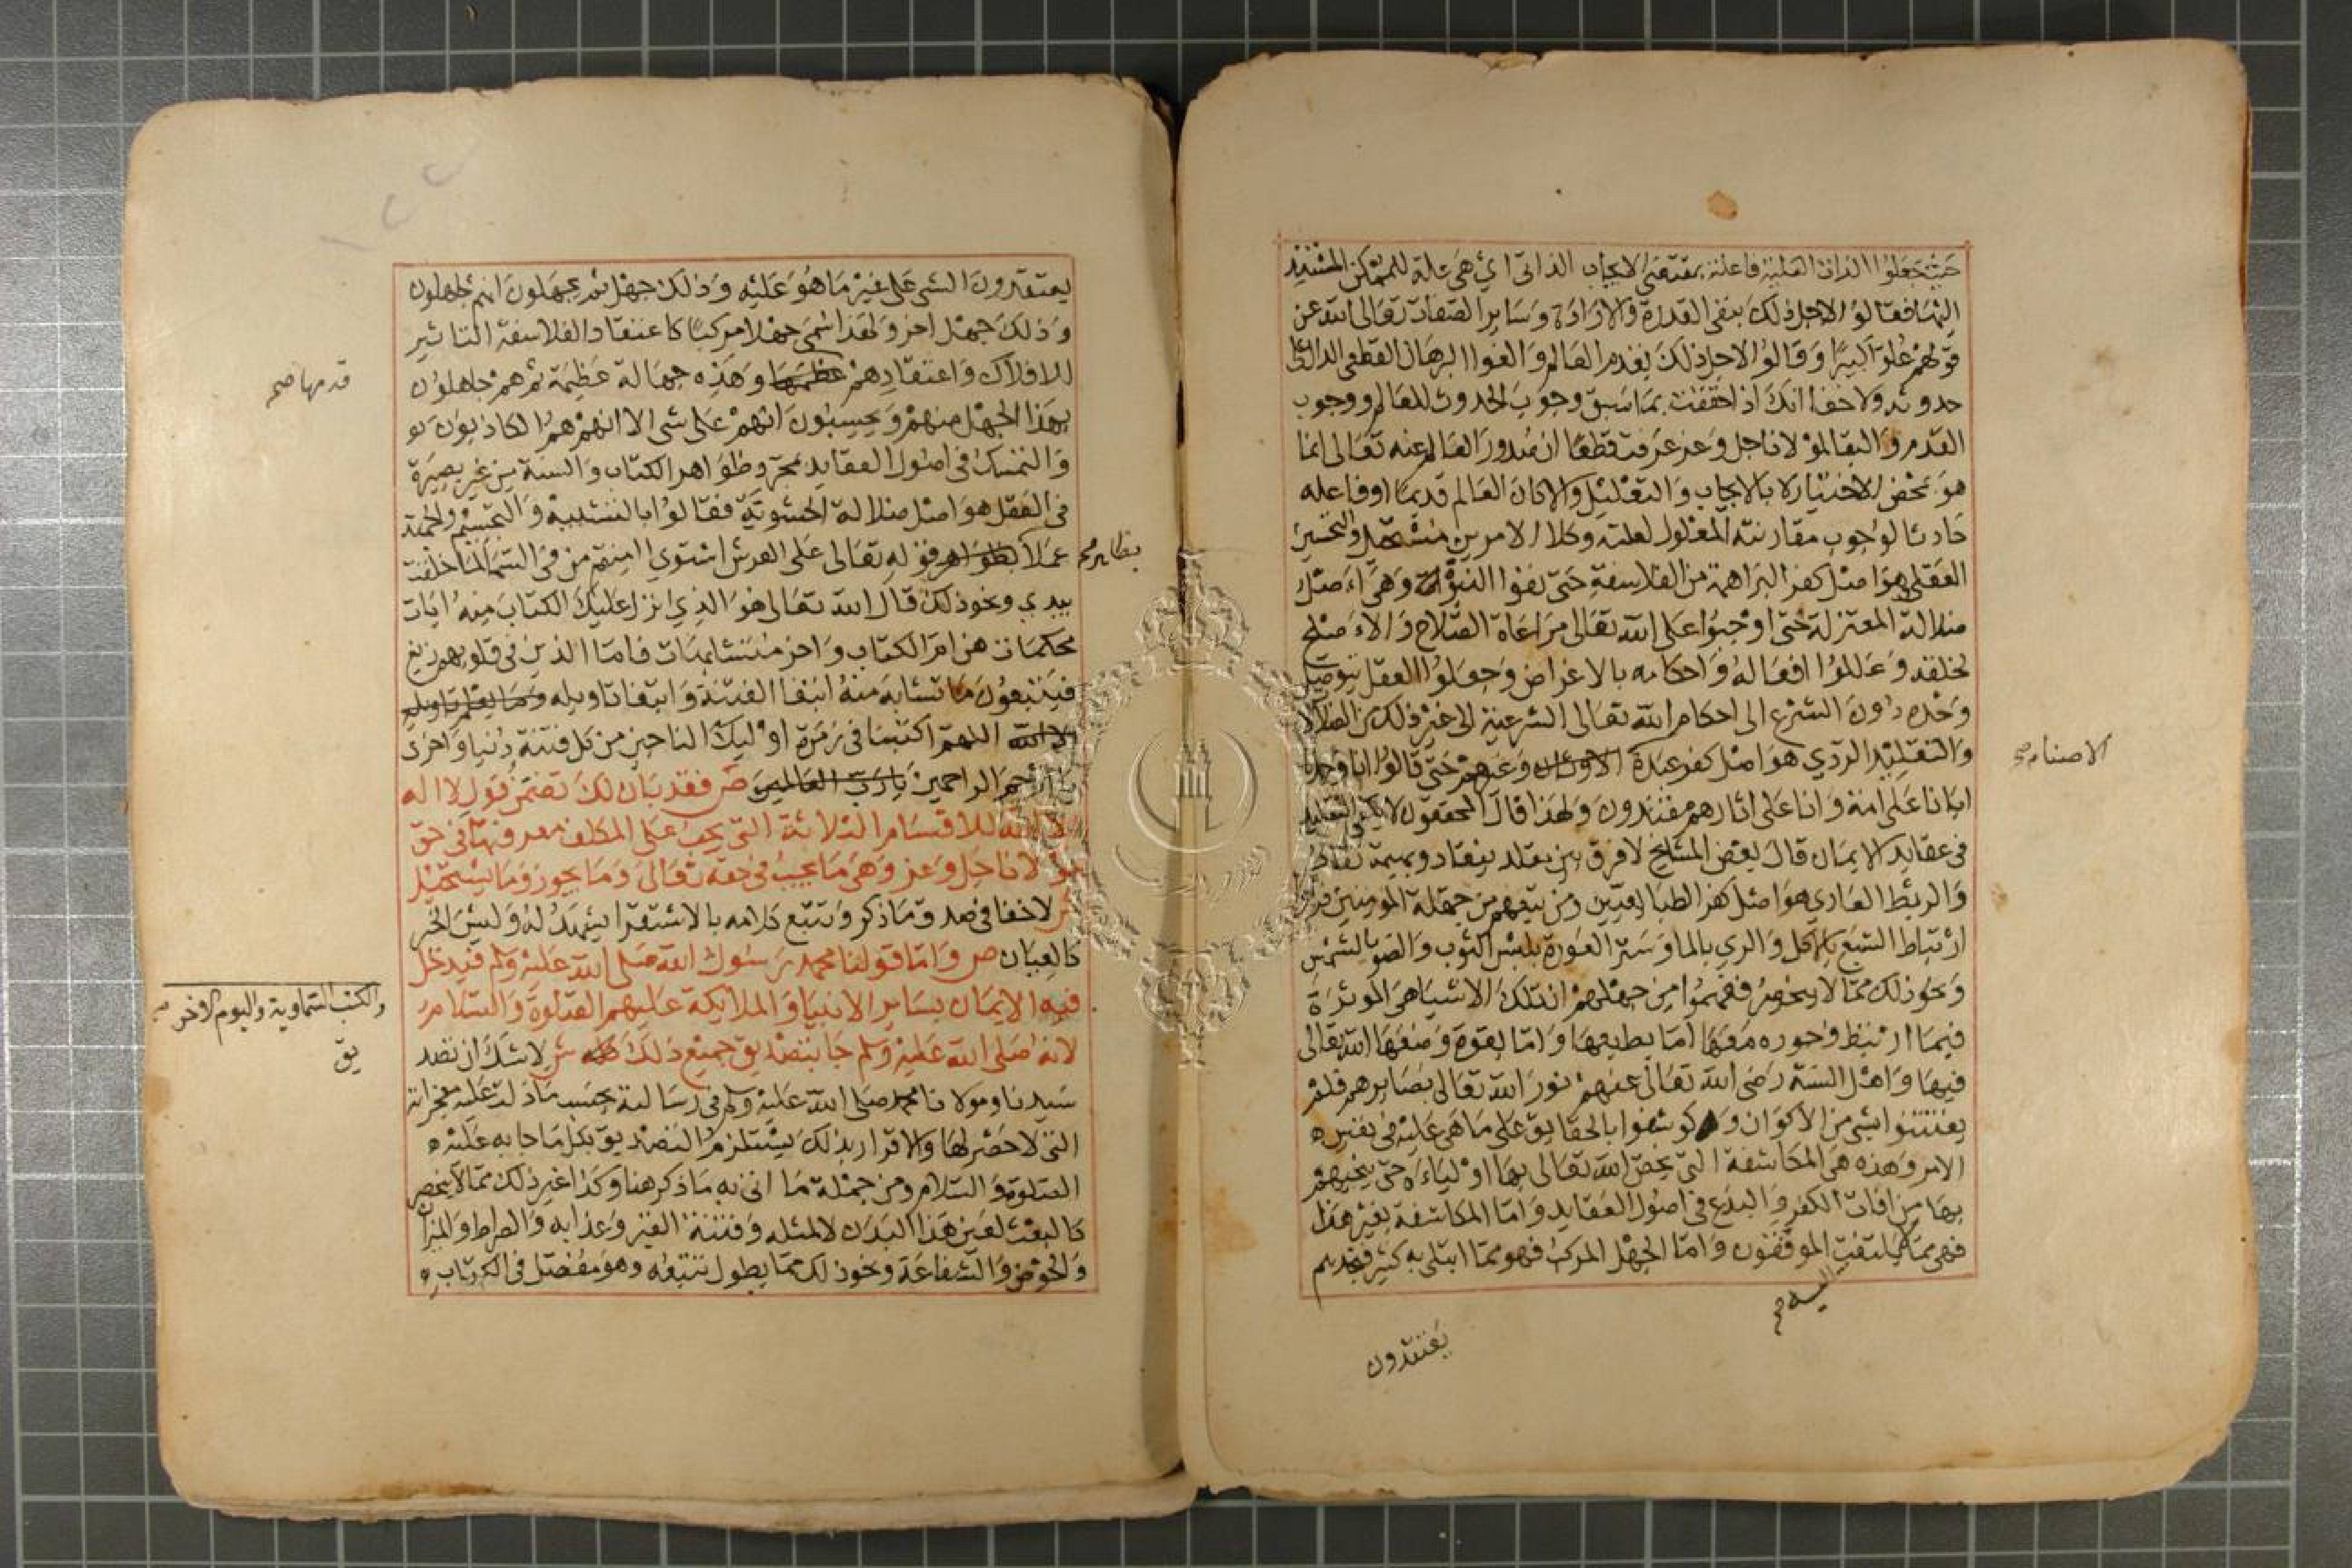 حيث جعلوا الذات العلية فاعلة بمقتضى الايجاب الذاتي اي هي علة للممكن المستند
اليها فقالوا لاجل ذلك بنفي القدرة والارادة وساير الصفات تعالى الله عن
قولهم علوا كبيرا وقالوا لاجل ذلك بقدم العالم والغوا البرهان القطعي الدال على
حدوثه ولا خفا انك اذا حققت بما سبق وجوب الحدوث للعالم ووجوب
القدم والبقا لمولانا جل وعز عرفت قطعا ان صدور العالم عنه تعالى انما
هو بمحض الاختيار لا بالايجاب والتعليل والا كان العالم قديما او فاعله
حادثا لوجوب مقارنة المعلول لعلته وكلا الامرين مستحيل والتحسين
العقلي هو اصل كفر البراهمة من الفلاسفة حتى نفوا النبوة وهي اصل
ضلالة المعتزلة حتى اوجبوا على الله تعالى مراعاة الصلاح والاصلح
لخلقه وعللوا افعاله واحكامه بالاغراض وجعلوا العقل يتوصل
وحده دون الشرع الى احكام الله تعالى الشرعية الى غير ذلك من الضلالا
والتقليد الردي هو اصل كفر عبدة الاوثان وغيرهم حتى قالوا انا وجدنا
الاصنام صح
اباءنا على امة وانا على اثارهم مقتدون ولهذا قال المحققون لا يكفي التقليد
في عقايد الايمان قال بعض المشايخ لا فرق بين مقلد ينقاد وبهيمة تقاد
والربط العادي هو اصل كفر الطبايعيين ومن تبعهم من جهلة المومنين فراوا
ارتباط الشبع بالاكل والري بالما وستر العورة بلبس الثوب والضو بالشمس
ونحو ذلك مما لا ينحصر ففهموا من جهلهم ان تلك الاشيا هي الموثرة
فيما ارتبط وجوده معها اما بطبعها واما بقوة وضعها الله تعالى
فيها واهل السنة رضي الله تعالى عنهم نور الله تعالى بصايرهم فلم
يفتتنوا بشي من الاكوان وكوشفوا بالحقايق على ما هي عليه في نفس
الامر وهذه هي المكاشفة التي يخص الله تعالى بها اولياءه حتى ينجيهم
بها من افات الكفر والبدع في اصول العقايد واما المكاشفة بغير هذا
فهي مما لا يلتفت الموفقون واما الجهل المركب فهو مما ابتلي به كثير فتجدهم
اليه صح
يعتقدون
يعتقدون الشي على غير ما هو عليه وذلك جهل ثم يجهلون انهم جاهلون
وذلك جهل اخر ولهذا سمي جهلا مركبا كاعتقاد الفلاسفة التاثير
للافلاك واعتقادهم عظمها وهذه جهالة عظيمة ثم هم جاهلون
قدمها صح
بهذا الجهل منهم ويحسبون انهم على شي الا انهم هم الكاذبون
والتمسك في اصول العقايد بمجرد ظواهر الكتاب والسنة من غير بصيرة
في العقل هو اصل ضلالة الحشوية فقالوا بالتشبيه والتجسيم والجهة
عملا بظواهر قوله تعالى على العرش استوى اامنتم من في السما لما خلقت
بظاهر صح
بيدي ونحو ذلك قال الله تعالى هو الذي انزل عليك الكتاب منه ايات
محكمات هن ام الكتاب واخر متشابهات فاما الذين في قلوبهم زيغ
فيتبعون ما تشابه منه ابتغا الفتنة وابتغا تاويله وما يعلم تاويله
الا الله اللهم اكتبنا في زمرة اوليك الناجين من كل فتنة دنيا واخرى
يا ارحم الراحمين يا رب العالمين ص فقد بان لك تضمن قول لا اله
الا الله للاقسام الثلاثة التي يجب على المكلف معرفتها في حق
مولانا جل وعز وهي ما يجب في حقه تعالى وما يجوز وما يستحيل
ش لا خفا في صدق ما ذكر وتتبع كلامه بالاستقرا يشهد له وليس الخبر
كالعيان ص واما قولنا محمد رسول الله صلى الله عليه وسلم فيدخل
فيه الايمان بساير الانبيا والملايكة عليهم الصلوة والسلام
والكتب السماوية واليوم الاخر صح
لانه صلى الله عليه وسلم جا بتصديق جميع ذلك كله ش لا شك ان تصد
يق
سيدنا ومولانا محمد صلى الله عليه وسلم في رسالته حسب ما دلت عليه معجزاته
التي لا حصر لها والاقرار بذلك يستلزم التصديق بكل ما جا به عليه
الصلوة والسلام ومن جملة ما اتى به ما ذكر هنا وكذا غير ذلك مما لا ينحصر
كالبعث لعين هذا البدن لا لمثله وفتنة القبر وعذابه والصراط والميزان
والحوض والشفاعة ونحو ذلك مما يطول تتبعه وهو مفصل في الكتاب